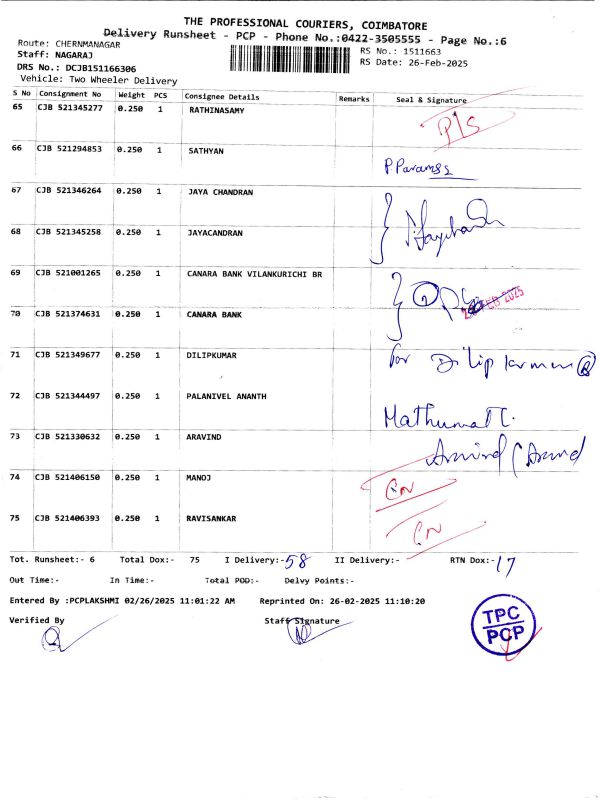 THE PROFESSIONAL COURIERS, COIMBATORE
Delivery Runsheet - PCP - Phone No.:0422-3505555 - Page No.:6
Route: CHERNMANAGAR
Staff: NAGARAJ
DRS No.: DCJB151166306
Vehicle: Two Wheeler Delivery
RS No.: 1511663
RS Date: 26-Feb-2025
S No Consignment No Weight PCS Consignee Details Remarks Seal & Signature
65 CJB 521345277 0.250 1 RATHINASAMY P/S
66 CJB 521294853 0.250 1 SATHYAN
67 CJB 521346264 0.250 1 JAYA CHANDRAN
68 CJB 521345258 0.250 1 JAYACANDRAN
69 CJB 521001265 0.250 1 CANARA BANK VILANKURICHI BR
FEB 2025
70 CJB 521374631 0.250 1 CANARA BANK
71 CJB 521349677 0.250 1 DILIPKUMAR for
72 CJB 521344497 0.250 1 PALANIVEL ANANTH
73 CJB 521330632 0.250 1 ARAVIND
74 CJB 521406150 0.250 1 MANOJ CN
75 CJB 521406393 0.250 1 RAVISANKAR CN
Tot. Runsheet:- 6 Total Dox:- 75 I Delivery:- 58 II Delivery:- RTN Dox:- 17
Out Time:- In Time:- Total POD:- Delvy Points:-
Entered By :PCPLAKSHMI 02/26/2025 11:01:22 AM Reprinted On: 26-02-2025 11:10:20
Verified By Staff Signature
TPC
PCP